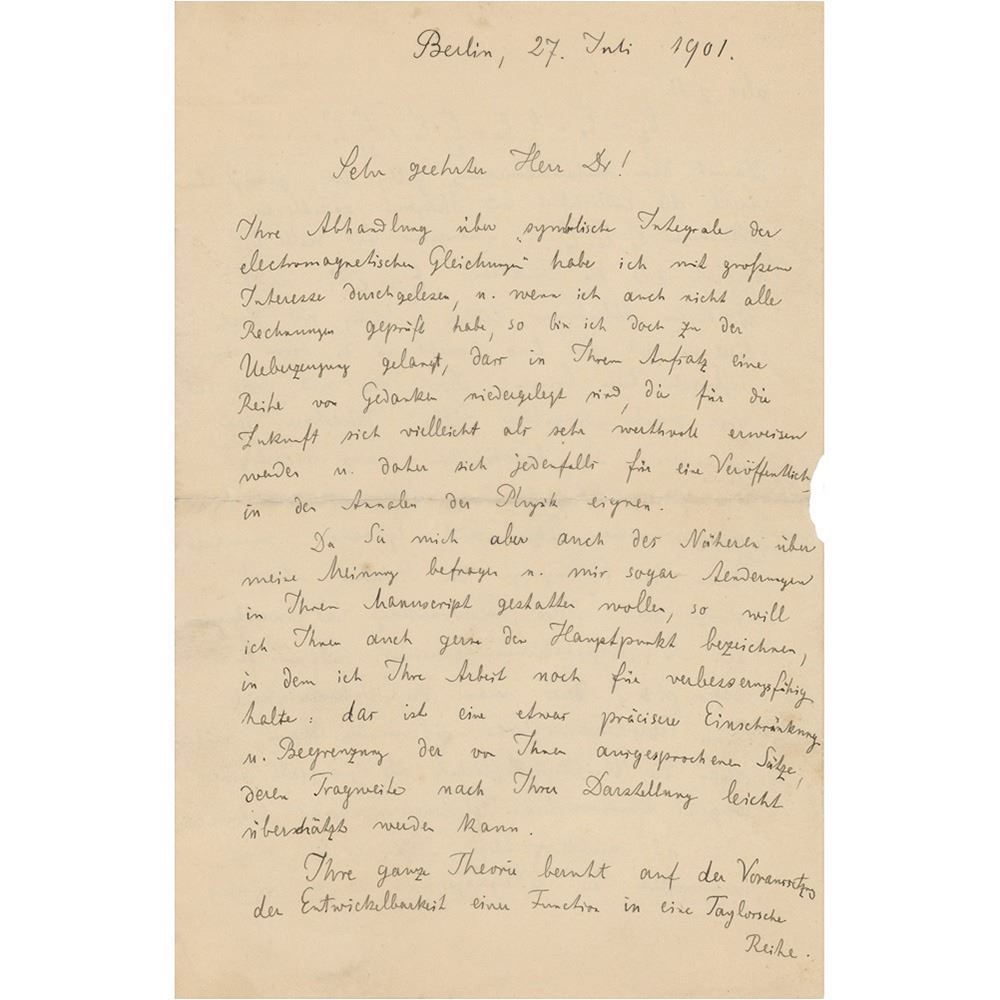 Berlin, 27. Juli 1901.
Sehr geehrter Herr Dr!
Ihre Abhandlung über „symbolische Integrale der
electromagnetischen Gleichungen" habe ich mit großem
Interesse durchgelesen, u. wenn ich auch nicht alle
Rechnungen geprüft habe, so bin ich doch zu der
Ueberzeugung gelangt, dass in Ihrem Aufsatz eine
Reihe von Gedanken niedergelegt sind, die für die
Zukunft sich vielleicht als sehr werthvoll erweisen
werden u. daher sich jedenfalls für eine Veröffentlich-
in den Annalen der Physik eignen.
Da Sie mich aber auch des Näheren über
meine Meinung befragen u. mir sogar Aenderungen
in Ihrem Manuscript gestatten wollen, so will
ich Ihnen auch gerne den Hauptpunkt bezeichnen,
in dem ich Ihre Arbeit noch für verbesserungsfähig
halte: das ist eine etwas präcisere Einschränkung
u. Begrenzung der von Ihnen ausgesprochenen Sätze,
deren Tragweite nach Ihrer Darstellung leicht
überschätzt werden kann.
Ihre ganze Theorie beruht auf der Voraussetzung
der Entwickelbarkeit einer Function in eine Taylorsche
Reihe.